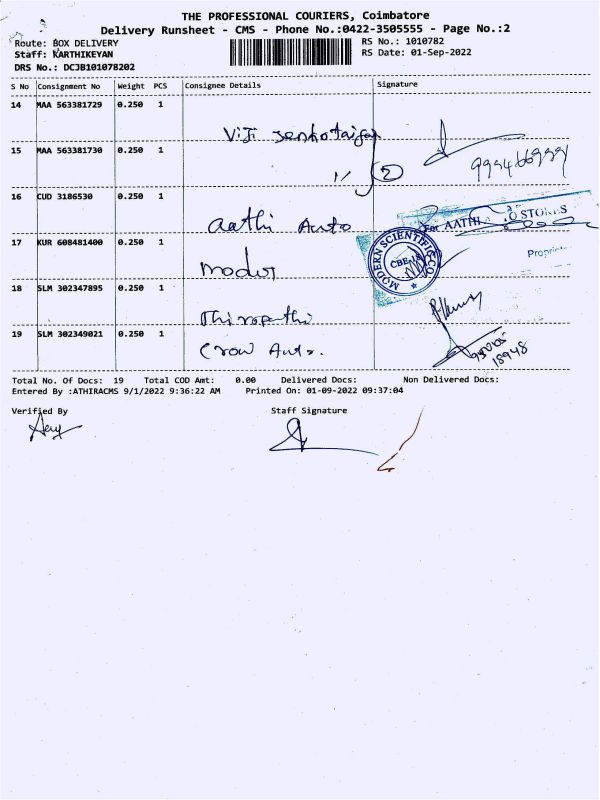 THE PROFESSIONAL COURIERS, Coimbatore
Delivery Runsheet - CMS - Phone No.:0422-3505555 - Page No.:2
Route: BOX DELIVERY
RS No.: 1010782
Staff: KARTHIKEYAN
RS Date: 01-Sep-2022
DRS No.: DCJB101078202
S No Consignment No Weight PCS Consignee Details Signature
14 MAA 563381729 0.250 1
15 MAA 563381730 0.250 1
2
16 CUD 3186530 0.250 1
Aathi Auto
For AATHI
STORES
17 KUR 608481400 0.250 1
MODERN SCIENTIFIC CO.
CBE-18
18 SLM 302347895 0.250 1
19 SLM 302349021 0.250 1
Crow Auto.
18948
Total No. Of Docs: 19 Total COD Amt: 0.00 Delivered Docs: Non Delivered Docs:
Entered By :ATHIRACMS 9/1/2022 9:36:22 AM Printed On: 01-09-2022 09:37:04
Verified By Staff Signature